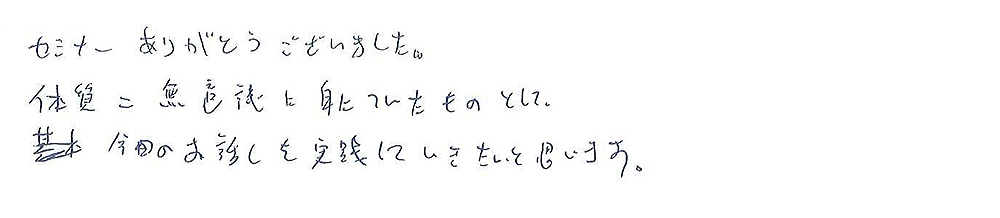 セミナーありがとうございました。
体質=無意識に身についたものとして、
今回のお話しを実践していきたいと思います。